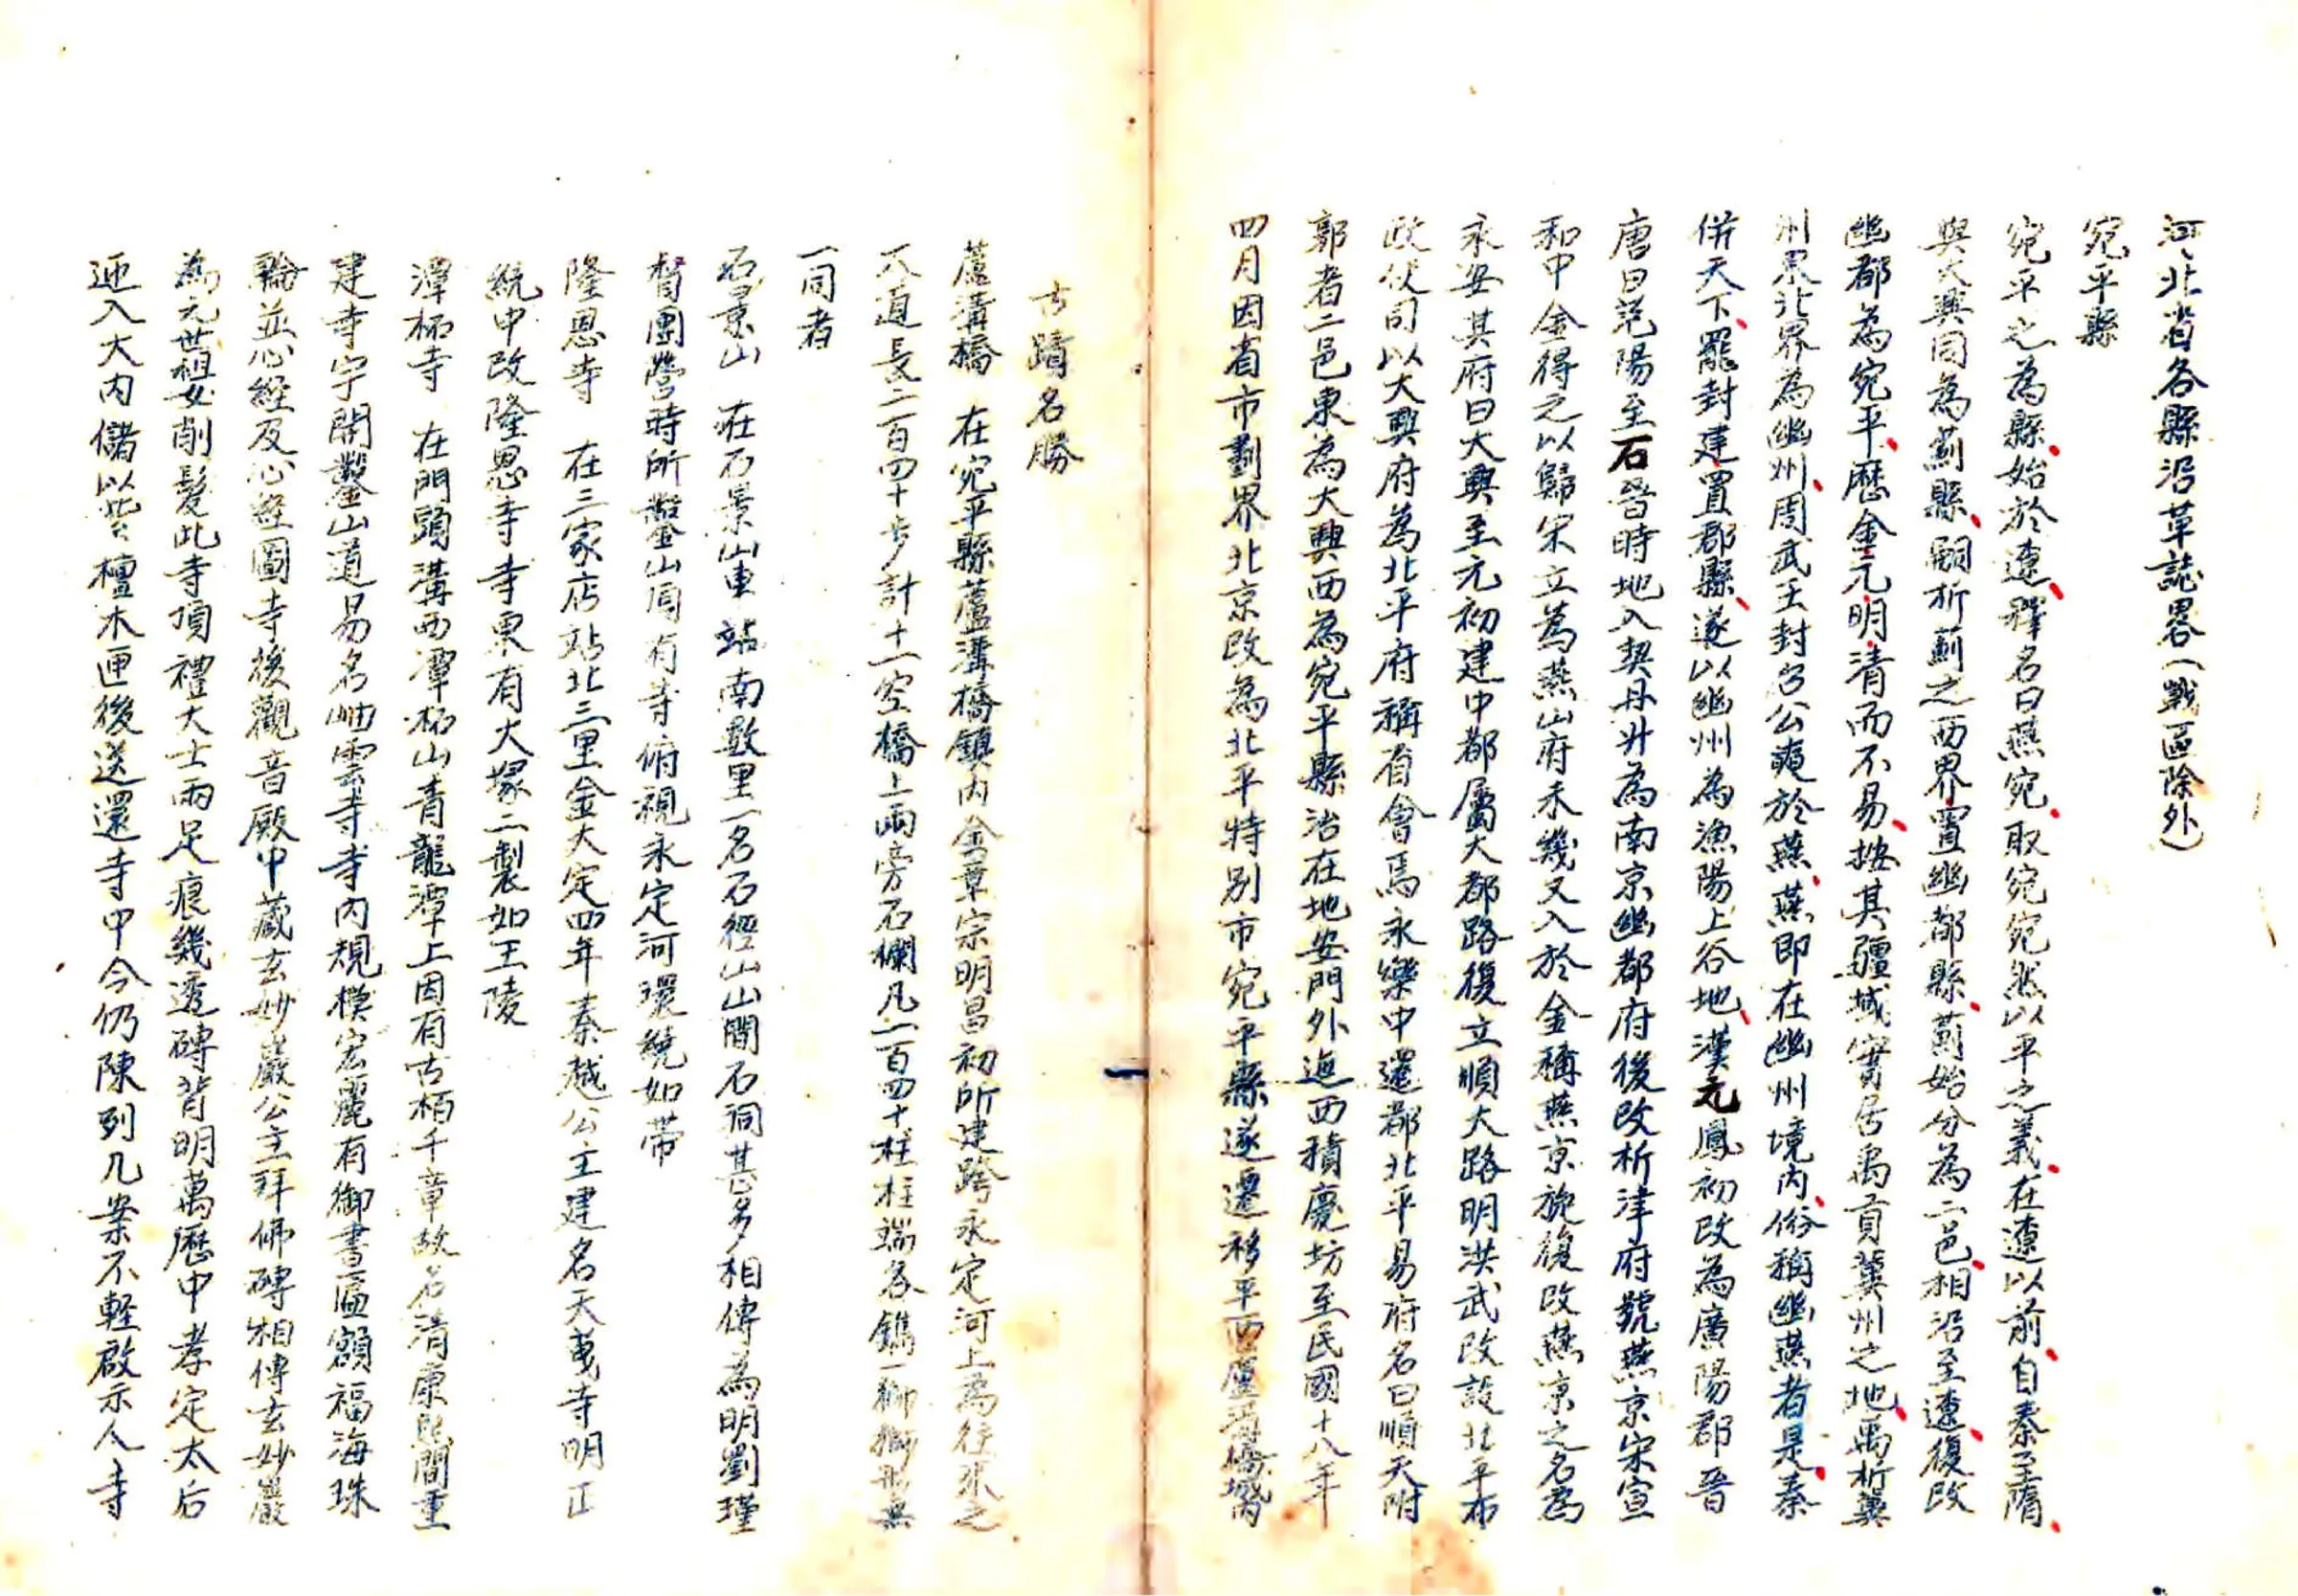 河北省各縣沿革誌畧(戰區除外)
宛平縣
宛平之為縣始於遼釋名曰燕宛取宛宛然以平之義在遼以前自秦至隋
與大興同為薊縣嗣析薊之西界置幽都縣薊始分為二邑相沿至遼復改
幽都為宛平歷金元明清而不易按其疆域實居禹貢冀州之地禹析冀
州東北界為幽州周武王封召公奭於燕燕即在幽州境內俗稱幽燕者是秦
併天下罷封建置郡縣遂以幽州為漁陽上谷地漢元鳳初改為廣陽郡晉
唐曰范陽至石晉時地入契丹升為南京幽都府後改析津府號燕京宋宣
和中金得之以歸宋立為燕山府未幾又入於金稱燕京旋復改燕京之名為
永安其府曰大興至元初建中都屬大都路復立順大路明洪武改設北平布
政使司以大興府為北平府稱省會焉永樂中遷都北平易府名曰順天附
郭者二邑東為大興西為宛平縣治在地安門外迤西積慶坊至民國十八年
四月因省市劃界北京改為北平特別市宛平縣遂遷移平西蘆溝橋城內
古蹟名勝
蘆溝橋 在宛平縣蘆溝橋鎮內金章宗明昌初所建跨永定河上為往來之
大道長二百四十步計十一空橋上兩旁石欄凡一百四十柱柱端各鐫一獅獅形無
一同者
石景山 在石景山車站南數里一名石經山山間石洞甚多相傳為明劉瑾
督團營時所鑿山頂有寺俯視永定河環繞如帶
隆恩寺 在三家店站北三里金大定四年秦越公主建名天旻寺明正
統中改隆恩寺寺東有大塚二製如王陵
潭柘寺 在門頭溝西潭柘山青龍潭上因有古栢千章故名清康熙間重
建寺宇開鑿山道易名岫雲寺寺內規模宏麗有御書匾額福海珠
輪並心經及心經圖寺後觀音殿中藏玄妙嚴公主拜佛磚相傳玄妙嚴
為元世祖女削髮此寺頂禮大士兩足痕幾透磚背明萬歷中孝定太后
迎入大內儲以紫檀木匣後送還寺中今仍陳列几案不輕啟示人寺